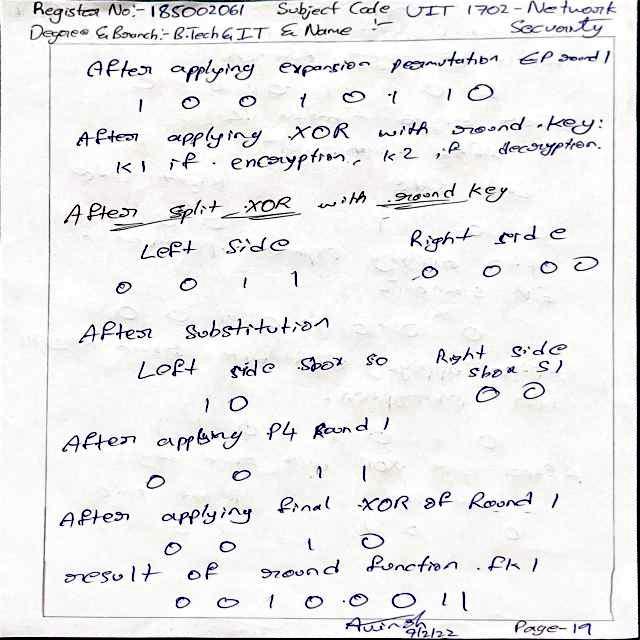 Register No:- 185002061 Subject Code UIT 1702 - Network
Degree & Branch:- B.Tech & IT & Name :- Security
After applying expansion permutation EP round 1
1 0 0 1 0 1 1 0
After applying XOR with round key:
K1 if encryption, K2 if decryption.
After split XOR with round key
Left side Right side
0 0 1 1 0 0 0 0
After substitution
Left side sbox so Right side
sbox S1
1 0 0 0
After applying P4 Round 1
0 0 1 1
After applying final XOR of Round 1
0 0 1 0
result of round function fk1
0 0 1 0 0 0 1 1
9/2/22 Page-19